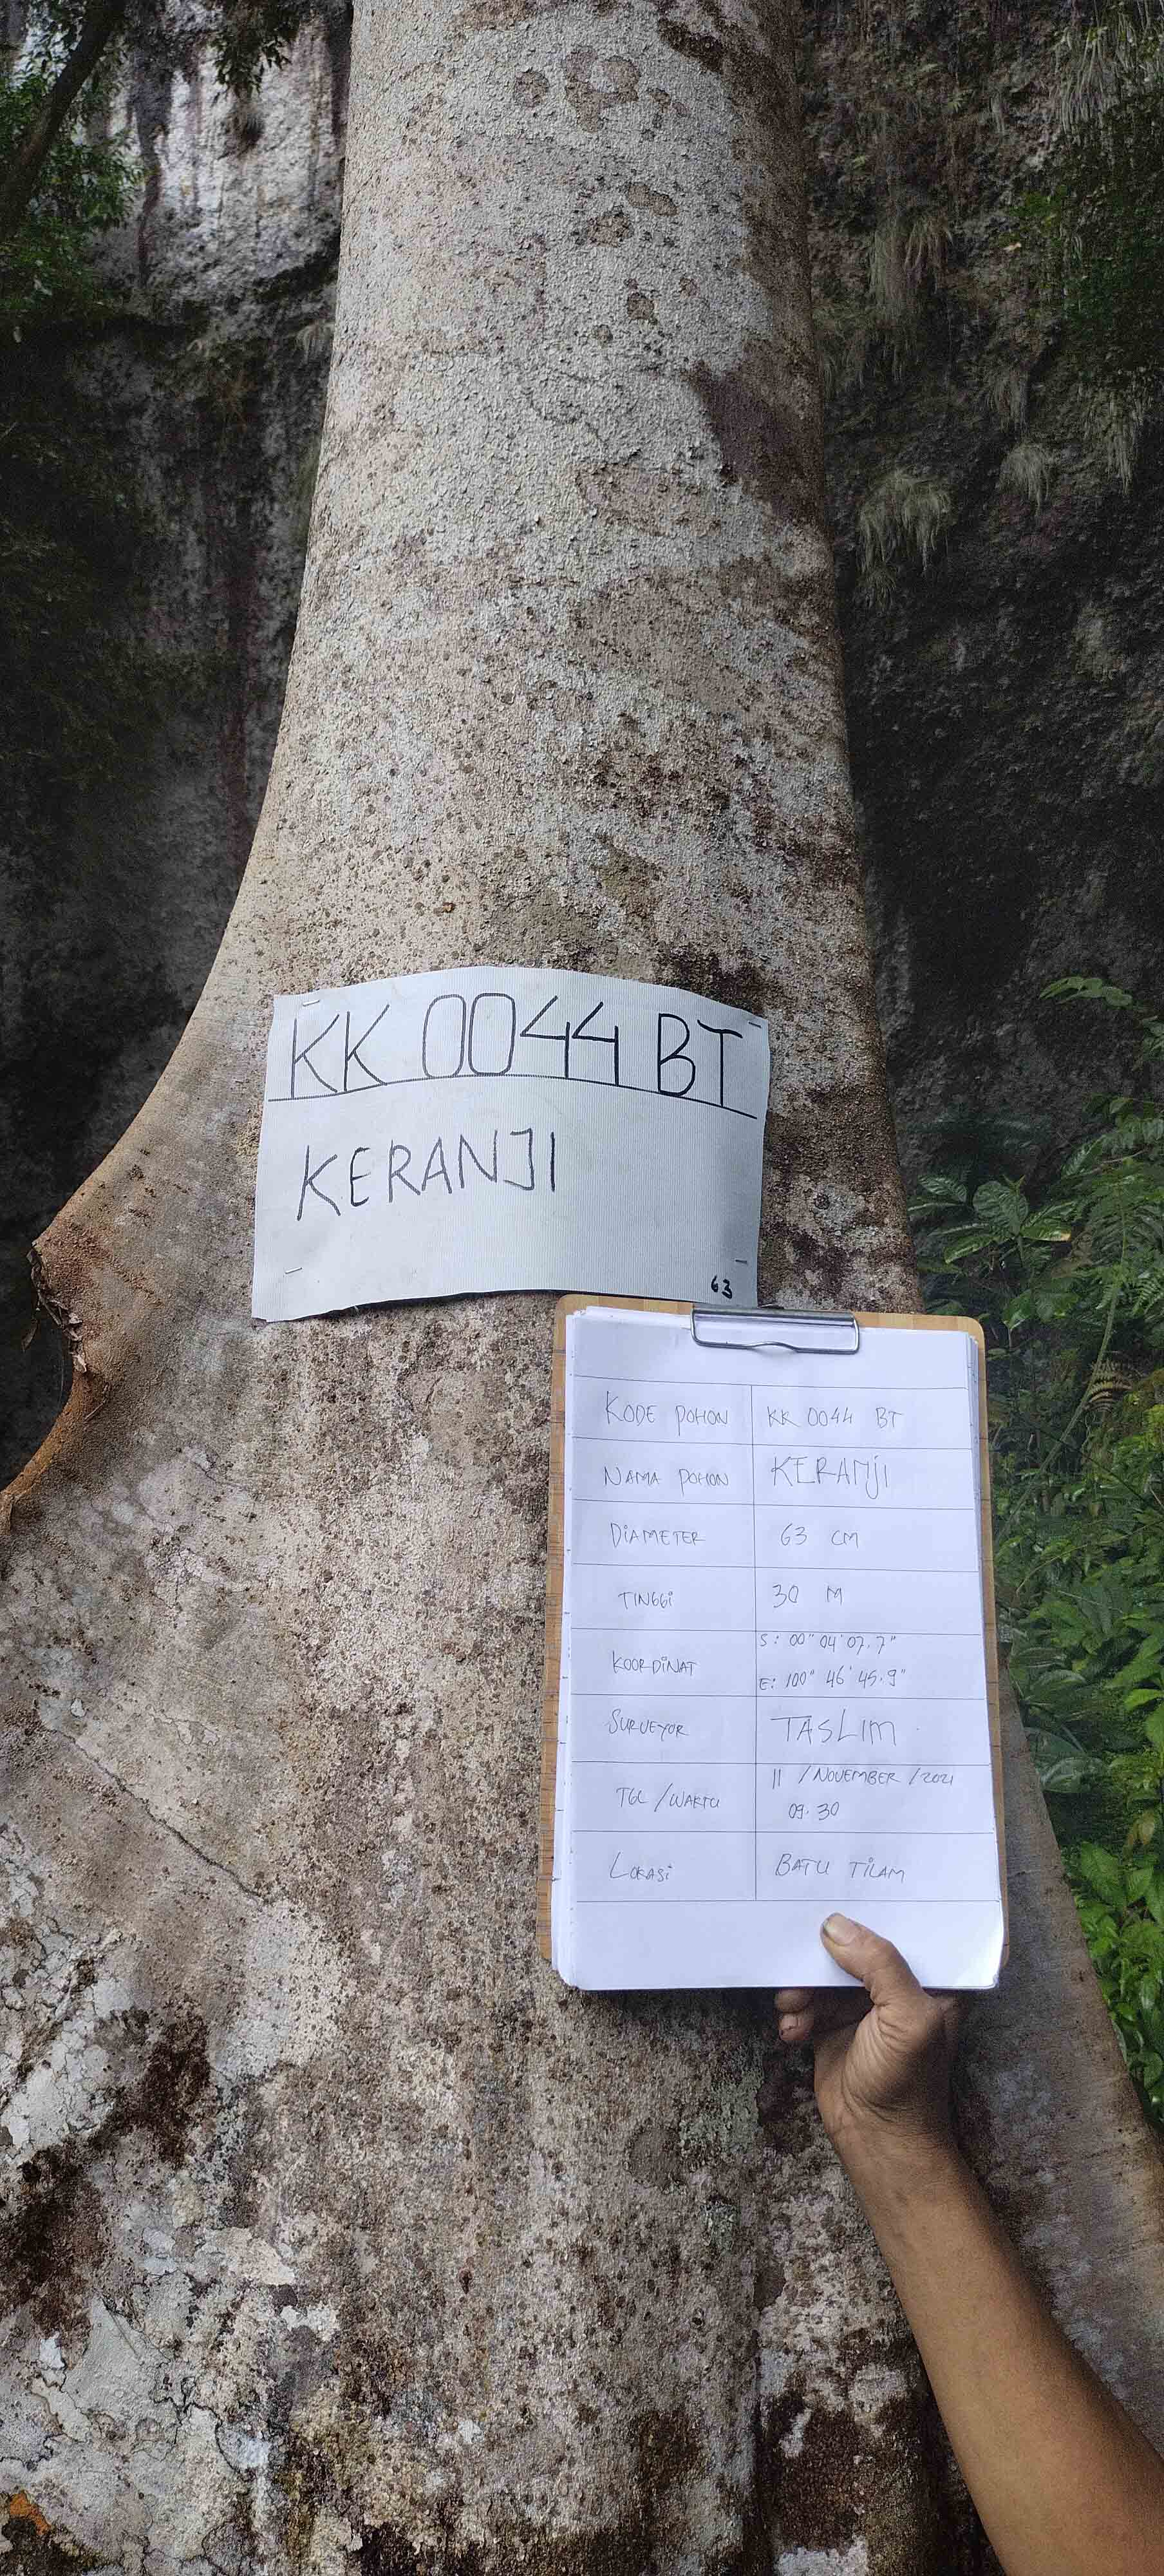 KK 0044 BT
KERANJI
63
KODE POHON KK 0044 BT
NAMA POHON KERANJI
DIAMETER 63 CM
TINGGI 30 M
KOORDINAT S: 00" 04' 07.7"
E: 100" 46' 45.9"
SURVEYOR TASLIM
TGL/WAKTU 11 /NOVEMBER /2021
09.30
LOKASI BATU TILAM